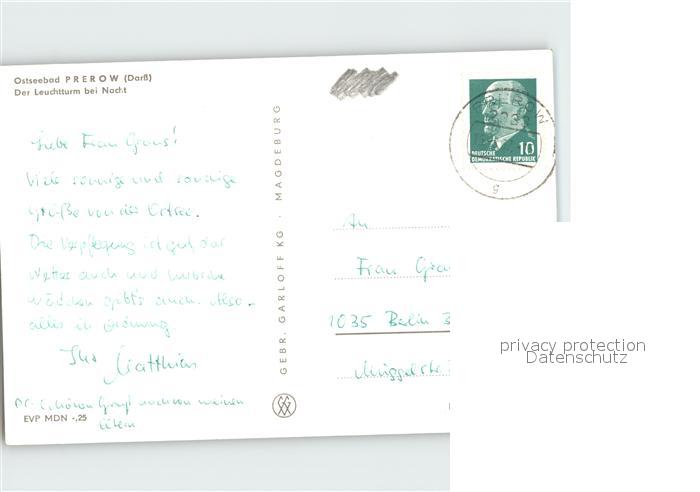 Ostseebad PREROW (Darß)
Der Leuchtturm bei Nacht
Liebe Frau
Viele sonnige und sandige
Grüße von der Ostsee.
Die Verpflegung ist gut, das
Wetter auch und hübsche
Mädchen gebt's auch. Also
alles in Ordnung
Ihr Matthias
PS: Schönen Gruß auch von meinen
Eltern
EVP MDN -,25
GEBR. GARLOFF KG · MAGDEBURG
PREROW
10
DEUTSCHE
DEMOKRATISCHE REPUBLIK
g
An
Frau
1035 Berlin 3
privacy protection
Datenschutz